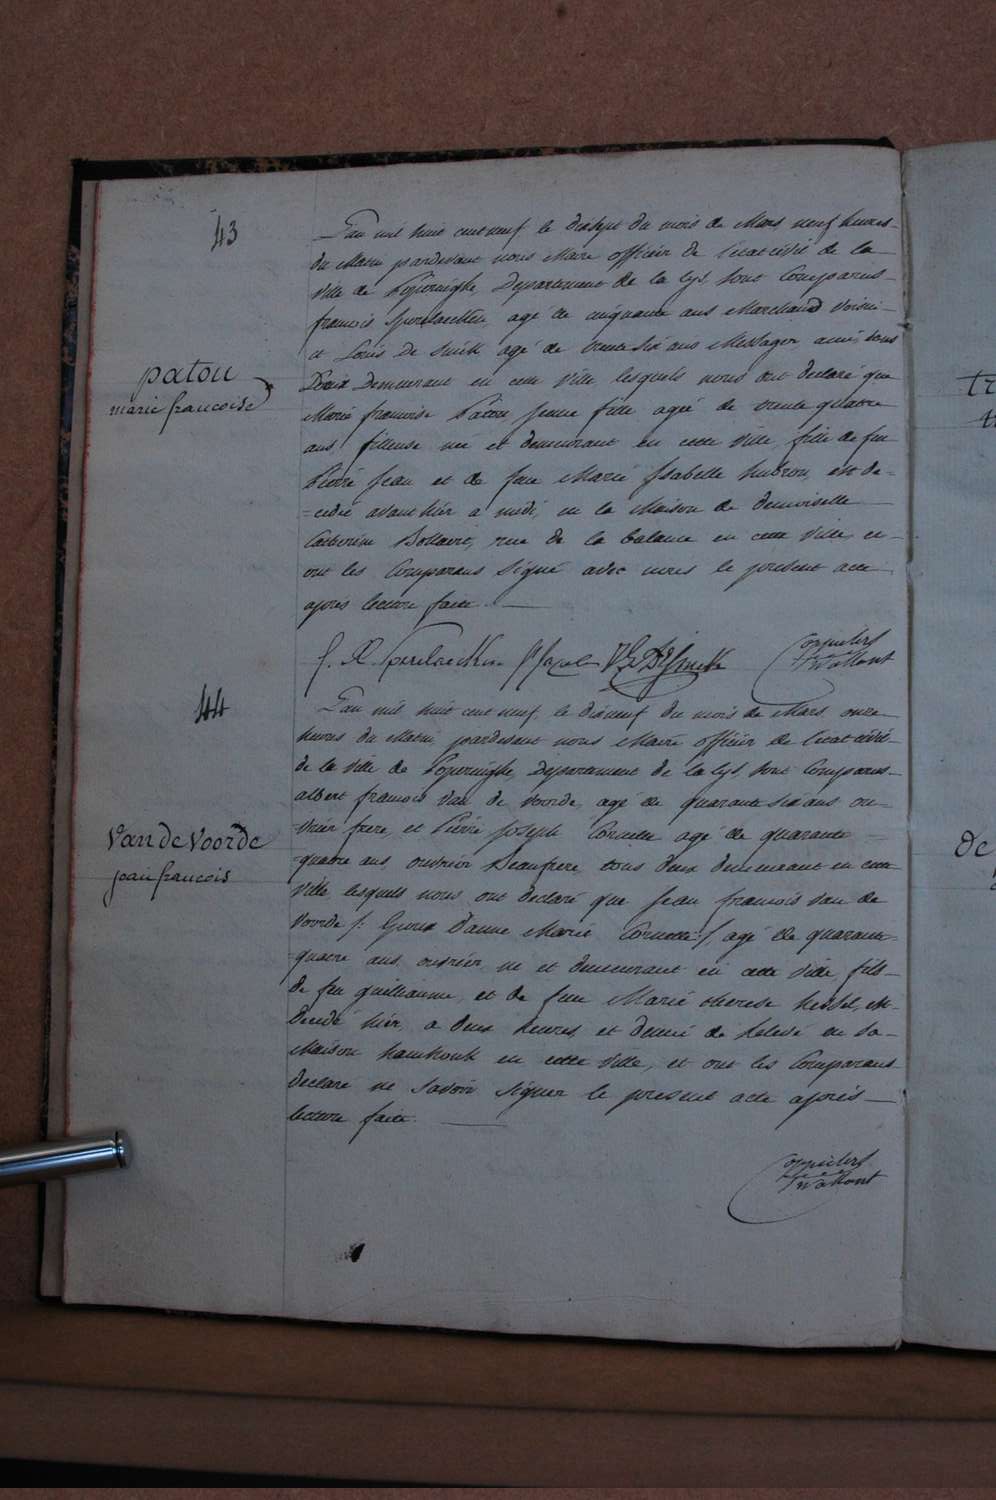 43
L'an mil huit cent neuf le dixsept du mois de Mars neuf heures
du Matin pardevant nous Maire officier de l'etat civil de la
ville de Poperinghe Departement de la Lys, sont Comparus
francois Sperlaecken, agé de cinquante ans Marchand voisin
et Louis De Smick agé de trente six ans Messager ami, tous
Deux Demeurant en cette ville, lesquels nous ont declaré que
patou
marie francoise
Marie francoise Patou jeune fille ageé de trente quatre
ans fileuse née et demeurant en cette ville, fille de feu
Pierre Jean et de feue Marie Isabelle hudron, est de=
=cedeé avant hier a midi, en la Maison de demoiselle
Catherine Bollaert, rue de la balance en cette ville, et
ont les Comparans Signé avec nous le present acte
aprés lecture faite.
44
L'an mil huit cent neuf, le dixneuf du mois de Mars onze
heures du Matin pardevant nous Maire officier de l'etat civil
de la ville de Poperinghe, Departement de la Lys, sont Comparus
albert francois Van de Voorde, agé de quarante six ans ou=
=vrier frere, et Pierre Joseph Cornette agé de quarante
Van de Voorde
jean francois
=quatre ans, ouvrier Beaufrere, tous deux demeurant en cette
ville, lesquels nous ont declaré que Jean francois Van de
Voorde /: Epoux D'anne Marie Cornette :/ agé de quarante
quatre ans, ouvrier, né et demeurant en cette ville, fils
de feu guilliaume, et de feue Marie therese hessel, est
Decedé hier, a deux heures, et demie de relevé en sa
Maison hamhouk en cette ville, et ont les Comparans
declaré ne savoir signer le present acte aprés
lecture faite.